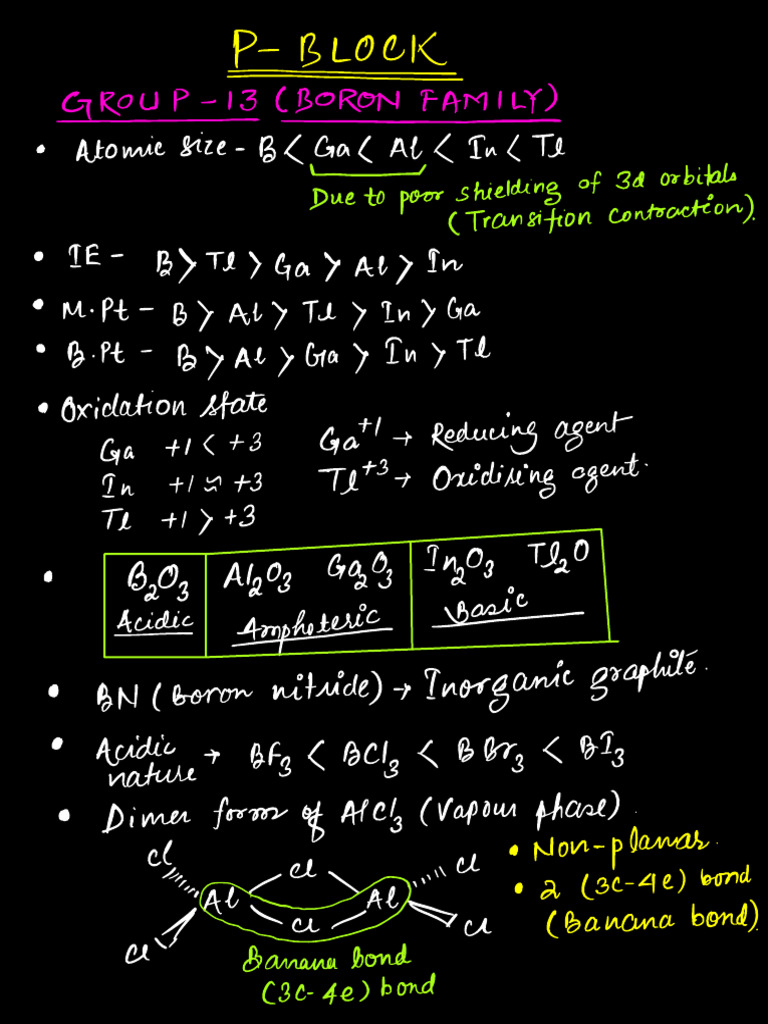 P-BLOCK
GROUP-13 (BORON FAMILY)
• Atomic size - B < Ga < Al < In < Tl
Due to poor shielding of 3d orbitals
(Transition contraction).
• IE - B > Tl > Ga > Al > In
• M.Pt - B > Al > Tl > In > Ga
• B.Pt - B > Al > Ga > In > Tl
• Oxidation state
Ga +1 < +3 Ga⁺¹ → Reducing agent
In +1 ≈ +3 Tl⁺³ → Oxidising agent.
Tl +1 > +3
• B₂O₃ Al₂O₃ Ga₂O₃ In₂O₃ Tl₂O
Acidic Amphoteric Basic
• BN (Boron nitride) → Inorganic graphite.
• Acidic nature → BF₃ < BCl₃ < BBr₃ < BI₃
• Dimer form of AlCl₃ (Vapour phase).
Cl Cl Cl
Al Al
Cl Cl Cl
• Non-planar.
• 2 (3c-4e) bond
(Banana bond).
Banana bond
(3c-4e) bond